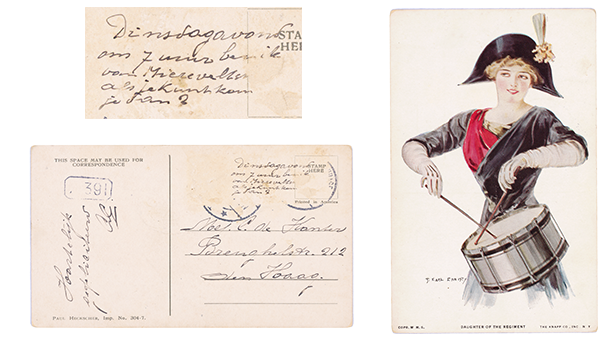 Dinsdagavond
om 7 uur ben ik
van Mierevelten
als je kunt kom
je dan?
STA
HE
THIS SPACE MAY BE USED FOR
CORRESPONDENCE
391
Hartelijk
Dinsdagavond
om 7 uur ben ik
van Mierevelten
als je kunt kom
je dan?
STAMP
HERE
Printed in America
de Kanter
Brueghelstr. 212
Den Haag.
PAUL HEINRICHS, Imp. No. 304-7.
T. EARL CHRISTY
COPR. W.M.S.
DAUGHTER OF THE REGIMENT
THE KNAPP CO., INC. N.Y.